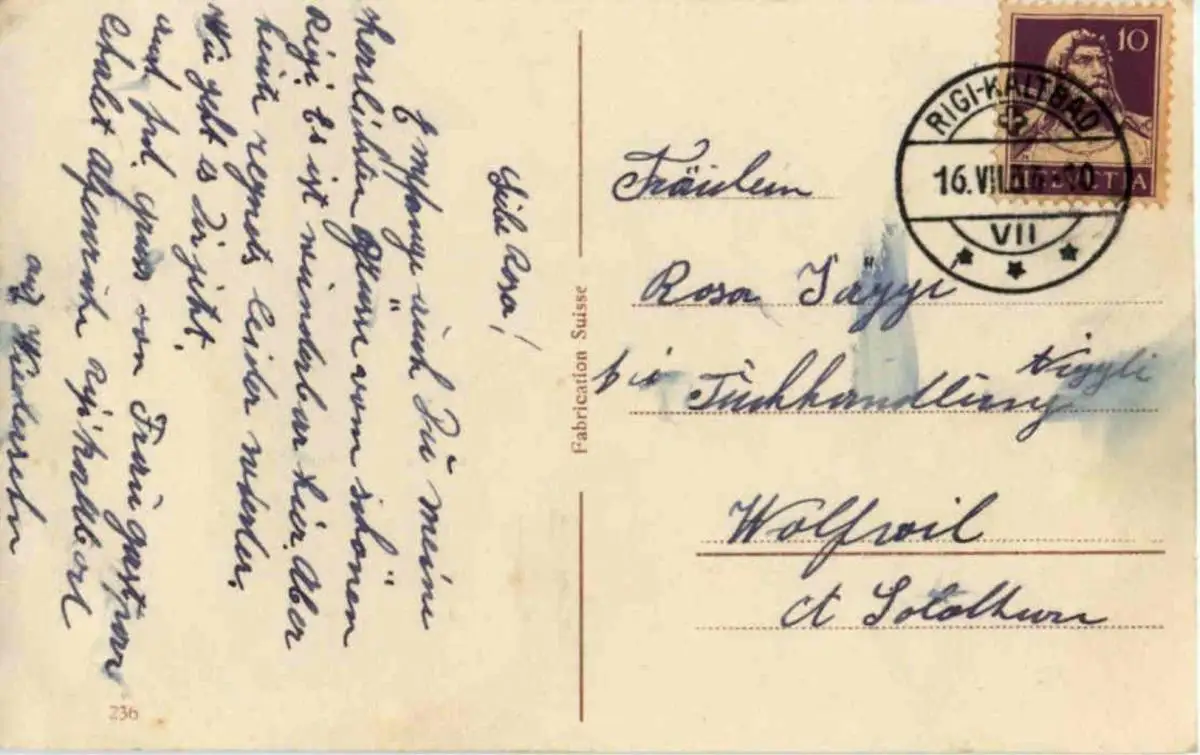 Liebe Rosa!
Empfange auch Du meine
herzlichen Grüsse vom schönen
Rigi. Es ist wunderbar hier. Aber
heute regnets leider wieder.
Wie geht es Dir jetzt.
und frdl. Gruss von Frau
Chalet Alpenruhe Rigi Kaltbad
auf Wiedersehn
236
Fabrication Suisse
10
HELVETIA
RIGI-KALTBAD
16.VII.
VII
Fräulein
Rosa Jäggi
bei Tuchhandlung Niggli
Wolfwil
Ct Solothurn